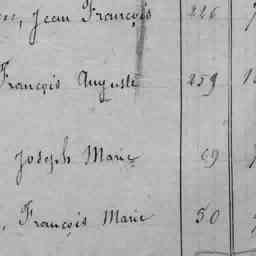 Jean François 226
François Auguste 259
Joseph Marie 69
, François Marie 50